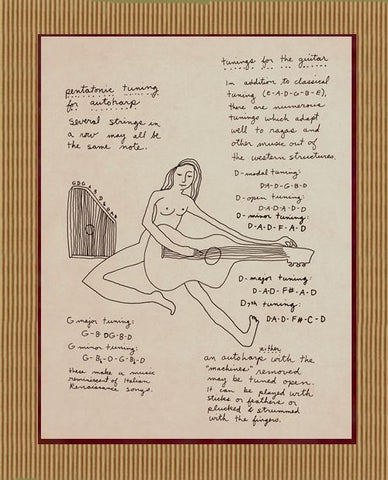 pentatonic tuning
for autoharp
Several strings in
a row may all be
the same note.
tunings for the guitar
In addition to classical
tuning (E-A-D-G-B-E),
there are numerous
tunings which adapt
well to ragas and
other music out of
the western structures.
D-modal tuning:
DA-D-G-B-D
D-open tuning:
DA-D-A-D-D
D-minor tuning:
D-A-D-F-A-D
D-major tuning:
D-A-D-F#-A-D
D7th tuning:
DA-D-F#-C-D
G major tuning:
G-B DG-B-D
G minor tuning:
G-B♭-D-G-B♭-D
these make a music
reminiscent of Italian
Renaissance songs.
either
an autoharp with the
"machines" removed
may be tuned open.
It can be played with
sticks or feathers or
plucked & strummed
with the fingers.